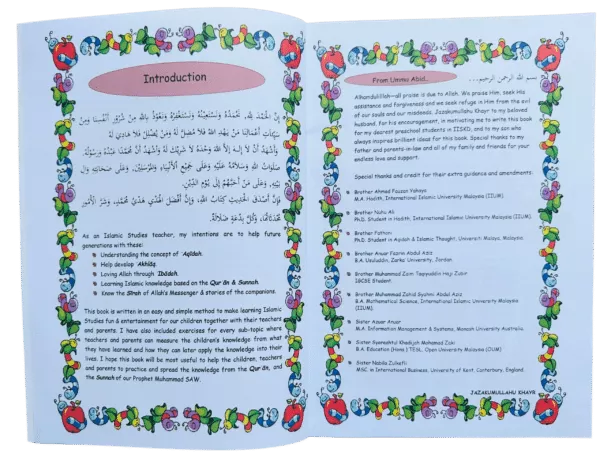 Introduction
إِنَّ الْحَمْدَ لِلَّهِ، نَحْمَدُهُ وَنَسْتَعِينُهُ وَنَسْتَغْفِرُهُ وَنَعُوذُ بِاللهِ مِنْ شُرُورِ أَنْفُسِنَا وَمِنْ
سَيِّئَاتِ أَعْمَالِنَا مَنْ يَهْدِ اللهُ فَلَا مُضِلَّ لَهُ وَمَنْ يُضْلِلْ فَلَا هَادِيَ لَهُ
وَأَشْهَدُ أَنْ لَا إِلَهَ إِلَّا اللهُ وَحْدَهُ لَا شَرِيكَ لَهُ وَأَشْهَدُ أَنَّ مُحَمَّدًا عَبْدُهُ وَرَسُولُهُ.
صَلَوَاتُ اللهِ وَسَلَامُهُ عَلَيْهِ وَعَلَى جَمِيْعِ الأَنْبِيَاءِ وَالمُرْسَلِيْنَ، وَعَلَى صَحَابَتِهِ وَآلِ
بَيْتِهِ، وَعَلَى مَنْ أَحَبَّهُمْ إِلَى يَوْمِ الدِّيْنِ.
فَإِنَّ أَصْدَقَ الْحَدِيثِ كِتَابُ اللهِ، وَإِنَّ أَفْضَلَ الْهَدْيِ هَدْيُ مُحَمَّدٍ، وَشَرَّ الْأُمُورِ
مُحْدَثَاتُهَا، وَكُلَّ بِدْعَةٍ ضَلَالَةٌ.
As an Islamic Studies teacher, my intentions are to help future
generations with these:
Understanding the concept of 'Aqīdah.
Help develop 'Akhlāq.
Loving Allah through 'Ibādah.
Learning Islamic knowledge based on the Qur'ān & Sunnah.
Know the Sīrah of Allah's Messenger & stories of the companions.
This book is written in an easy and simple method to make learning Islamic
Studies fun & entertainment for our children together with their teachers
and parents. I have also included exercises for every sub-topic where
teachers and parents can measure the children's knowledge from what
they have learned and how they can later apply the knowledge into their
lives. I hope this book will be most useful to help the children, teachers
and parents to practice and spread the knowledge from the Qur'ān, and
the Sunnah of our Prophet Muhammad SAW.
From Ummu Abid...
بسم الله الرحمن الرحيم....
Alhamdulillah—all praise is due to Allah. We praise Him, seek His
assistance and forgiveness and we seek refuge in Him from the evil
of our souls and our misdeeds. Jazakumullahu Khayr to my beloved
husband, for his encouragement, in motivating me to write this book
for my dearest preschool students in IISKD, and to my son who
always inspires brilliant ideas for this book. Special thanks to my
father and parents-in-law and all of my family and friends for your
endless love and support.
Special thanks and credit for their extra guidance and amendments:
Brother Ahmad Fauzan Yahaya
M.A. Hadith, International Islamic University Malaysia (IIUM).
Brother Nuhu Ali
Ph.D. Student in Hadith, International Islamic University Malaysia (IIUM).
Brother Fathoni
Ph.D. Student in Aqidah & Islamic Thought, Universiti Malaya, Malaysia.
Brother Anuar Fazrin Abdul Aziz
B.A. Usuluddin, Zarka' University, Jordan.
Brother Muhammad Zaim Taqiyuddin Haji Zubir
IGCSE Student
Brother Muhammad Zahid Syahmi Abdul Aziz
B.A. Mathematical Science, International Islamic University Malaysia
(IIUM).
Sister Ansar Anuar
M.A. Information Management & Systems, Monash University Australia.
Sister Syaredhtul Khadijah Mohamad Zaki
B.A. Education (Hons.) TESL, Open University Malaysia (OUM)
Sister Nabila Zulkefli
MSC in International Business, University of Kent, Canterbury, England.
JAZAKUMULLAHU KHAYR